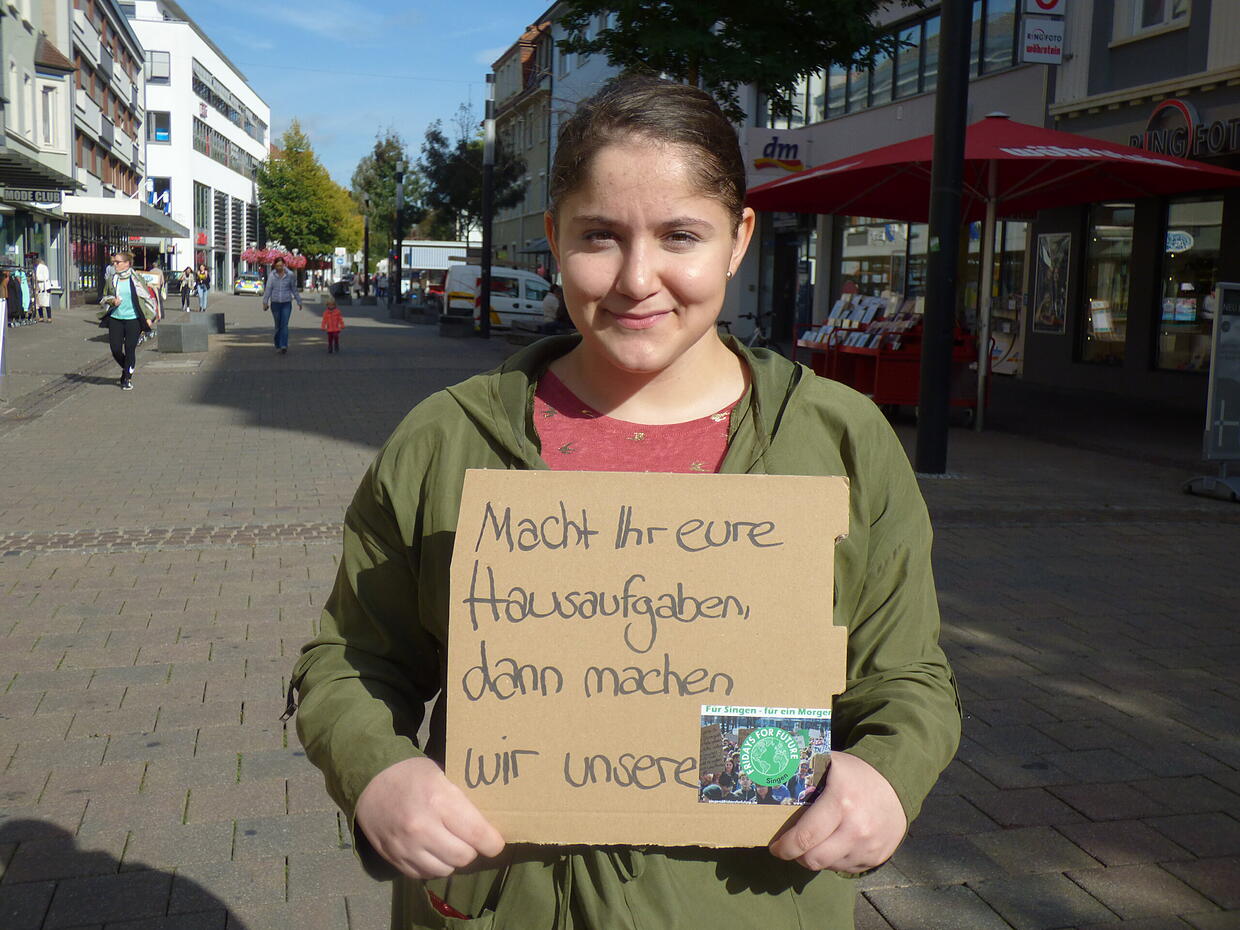 MODE CLUB
dm
RINGFOTO
wöhrstein
RINGFOTO
Macht Ihr eure
Hausaufgaben,
dann machen
wir unsere
Für Singen - für ein Morgen
FRIDAYS FOR FUTURE
Singen